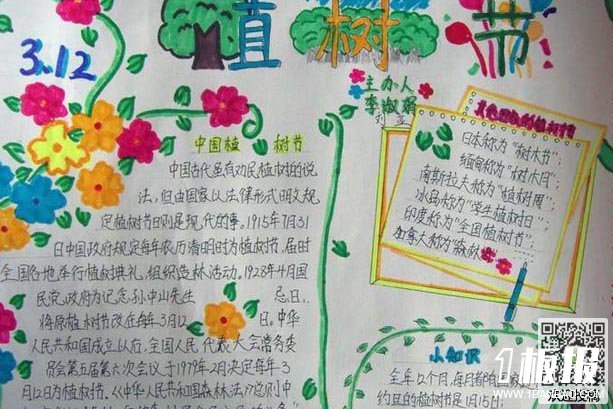 3.12
植树节
主办人
李淑娟
中国植树节
中国古代虽有劝民植树的说
法，但由国家以法律形式明文规
定植树节日则是现代的事。1915年7月31
日中国政府规定每年农历清明时为植树节，届时
全国各地举行植树典礼，组织造林活动。1928年4月国
民党政府为纪念孙中山先生 忌日，
将原植树节改在每年3月12 日。中华
人民共和国成立以后，全国人民代表大会常务委
员会第五届第六次会议于1979年2月决定每年3
月12日为植树节。《中华人民共和国森林法》总则中
其他国家的植树节
日本称为"树木节"；
缅甸称为"树木月"；
南斯拉夫称为"植树周"；
冰岛称为"学生植树日"；
印度称为"全国植树节"；
加拿大称为"森林
小知识
全年12个月，每月都有国家
约旦的植树节是1月15日；
1板报
www.1BANBAO.COM